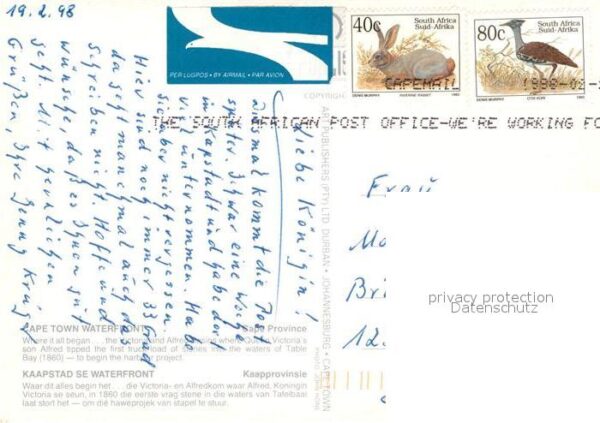 19.2.98
PER LUGPOS • BY AIRMAIL • PAR AVION
40c
South Africa
Suid-Afrika
DENIS MURPHY
RIVERINE RABBIT
1993
80c
South Africa
Suid-Afrika
DENIS MURPHY
1993
CAPEMAIL
1998-02-
THE SOUTH AFRICAN POST OFFICE-WE'RE WORKING FO
Liebe Königin!
kommt die Post
später. Ich war eine Woche
in Kapstadt und habe dort
v. unternommen. Habe
Sie aber nicht vergessen.
Hier sind noch immer 33 Grad
da geht manchmal auch das
Schreiben nicht. Hoffe und
wünsche, daß es Ihnen gut
geht. Mit herzlichen
Grüßen, Ihre Jenny
COPYRIGHT
ART PUBLISHERS (PTY) LTD. DURBAN • JOHANNESBURG • CAPE TOWN
Frau
Br
12.
privacy protection
Datenschutz
CAPE TOWN WATERFRONT
Cape Province
Where it all began . . . the Victoria and Alfred where Queen Victoria's
son Alfred tipped the first truck load of stones into the waters of Table
Bay (1860) — to begin the harbour project.
KAAPSTAD SE WATERFRONT
Kaapprovinsie
Waar dit alles begin het . . . die Victoria- en Alfredkom waar Alfred, Koningin
Victoria se seun, in 1860 die eerste vrag stene in die waters van Tafelbaai
laat stort het — om die haweprojek van stapel te stuur.